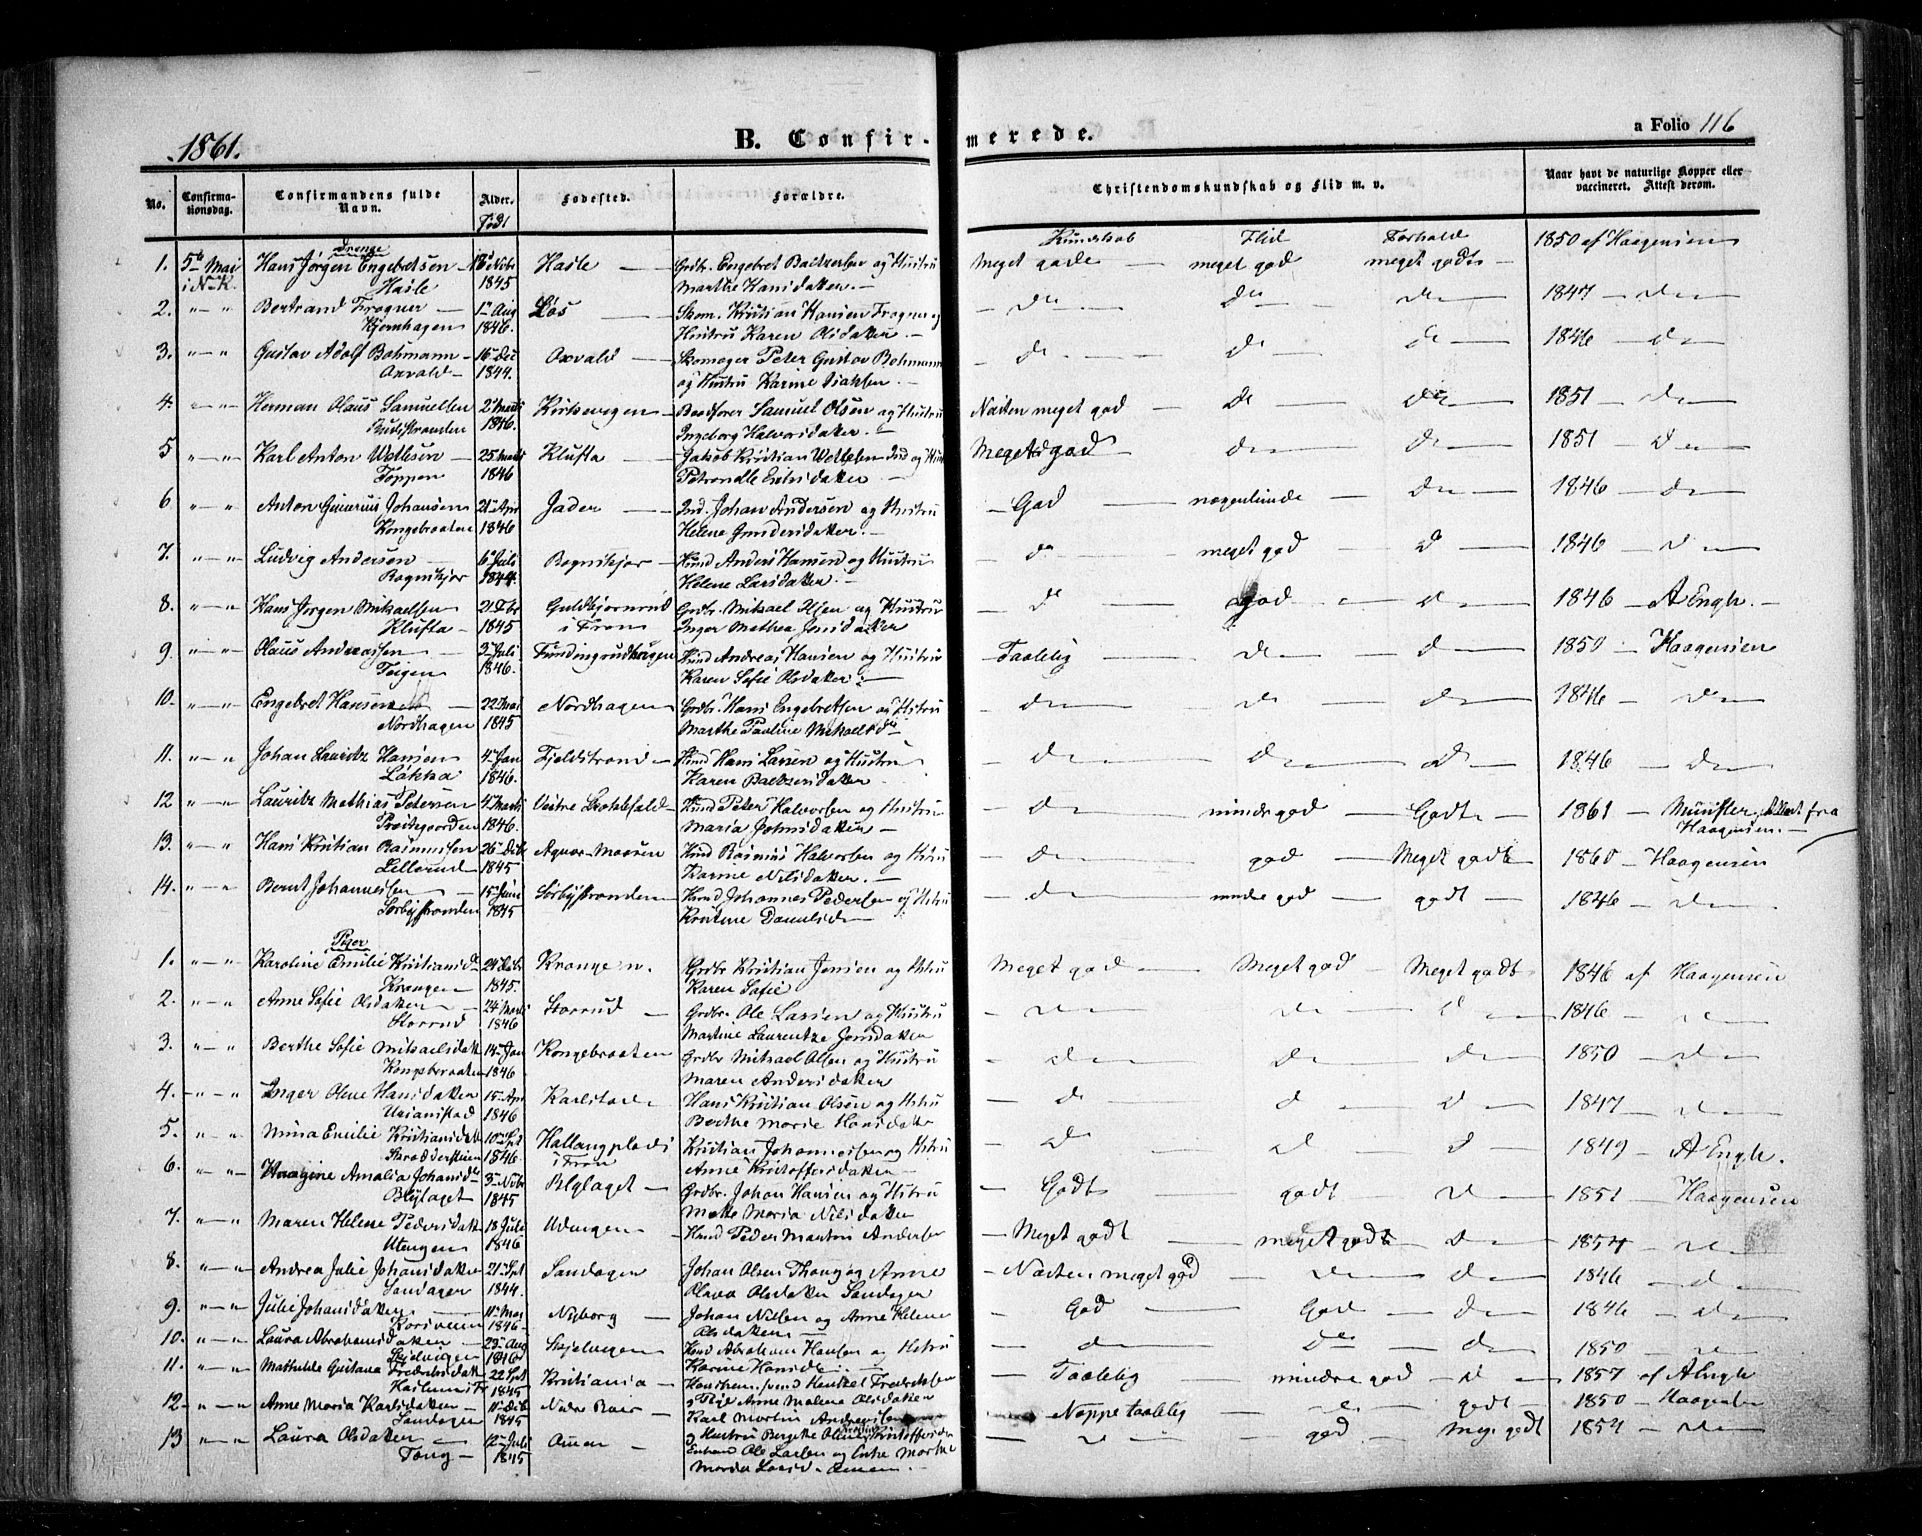 1861.
B. Confirmerede.
a Folio 116
No. Confirmationsdag. Confirmandens fulde Navn. Alder. Fødested. Forældre. Christendomskundskab og Flid m. v. Naar havt de naturlige Kopper eller vaccineret. Attest derom.
Født
Drenge
Kundskab Flid Forholde
1. 5te Mai Hans Jørgen Engebretsen 18 Novbr Hasle Grdbr. Engebret Baltzersen og Hustru Meget gode meget god meget godt 1850 af Haagensen
i N-K. Hasle 1845 Marthe Hansdatter.
2. " " Bertrand Frogner 1 Aug Løs Skom. Kristian Hansen Frogner og do do do 1847 do
Kjernhagen 1846. Hustru Karen Olsdatter.
3. " " Gustav Adolf Bohmann 16 Dec Oxvald Skomager Peter Gustov Bohmann do do do 1846 do
Oxvald 1844. og Hustru Karine Isaksen.
4. " " Herman Olaus Samuelsen 2 Marts Kirkevigen Samuel Olsen og Hustru Næsten meget god do do 1851 do
1846. Ingeborg Halvorsdatter.
5 " " Karl Anton 25 Marts Klufta Jakob Kristian Meget god do do 1851 do
Toppen 1846
6 " " Anton Gunerius Johansen 21 Apr Jader Ind. Johan Andersen og Hustru God nogenlunde do 1846 do
Kongebraaten 1846 Helene Gundersdatter.
7. " " Ludvig Andersen 6 Juli Bognskjær Hmd Anders Hansen og Hustru do meget god do 1846 do
Bognskjær 1844. Helene Larsdatter.
8. " " Hans Jørgen Mikaelsen 21 Febr Guldbjørnrud Grdbr. Mikael Olsen og Hustru do god do 1846 A Engh.
Klufta 1845 i Fron Inger Mathea Jensdatter
9. " " Olaus Andreassen 3 Juli Hmd Andreas Hansen og Hustru Taalelig do do 1850 Haagensen
Teigen 1846. Karen Sofie Olsdatter.
10. " " Engebret Hansen 22 Mai Nordhagen Grdbr. Hans Engebretsen og Hstru do do do 1846 do
Nordhagen 1845 Marthe Pauline Mikaelsd
11. " " Johan Lauritz Hansen 4 Jan Fjeldstrand Hmd Hans Larsen og Hustru do do do 1846 do
Løkka 1846. Karen Baltzersdatter.
12 " " Lauritz Mathias Petersen 4 Marts Vestre Skotbefald Hmd Peter Halvorsen og Hustru do mindre god Godt 1861 Münster, Attest fra
Præstegaarden 1846. Maria Johnsdatter Haagensen.
13. " " Hans Kristian Rasmussen 26 Decbr Agnor-Maaren Hmd Rasmus Halvorsen og Hstru do god Meget godt 1860 Haagensen
Lillerud 1845 Karine Nilsdatter.
14. " " Bernt Johannessen 15 Juni Sørbystranden Hmd Johannes Pedersen og Hstru do mindre god godt 1846 do
Sørbystranden 1845 Kristine Danielsd
Piger
1. " " Karoline Emilie Kristiansd 24 Decbr Krangen. Grdbr Kristian Jensen og Hstru Meget god Meget god Meget godt 1846 af Haagensen
Krangen 1845. Karen Sofie
2. " " Anne Sofie Olsdatter 24 Marts Storrud Grdbr. Ole Larsen og Hustru do do do 1846 do
Storrud 1846 Martine Laurentze Jensdatter
3. " " Berthe Sofie Mikaelsdatt 14 Jan Kongebraaten Grdbr Mikael Olsen og Hustru do do do 1850 do
Kongsbraaten 1846 Maren Andersdatter
4. " " Inger Olene Hansdatter 15 Apr Karlstad Hans Kristian Olsen og Hstru do do do 1847 do
1846 Berthe Marie Hansdatt
5. " " Nina Emilie Kristiansdatt 10 Spt Hallangplads Kristian Johannessen og Hstru do do do 1849 A Engh.
1846. i Fron Anne Kristoffersdatter
6. " " Haagine Amalia Johansd 3 Nvbr Blylaget Grdbr. Johan Hansen og Hstru Godt godt do 1851 Haagensen
Blylaget 1845 Mette Maria Nilsdatter
7. " " Maren Helene Pedersdatt 18 Juli Udengen Hmd Peder Martin Andersen Meget godt meget godt do 1854 do
Utengen 1846
8. " " Andrea Julie Johansdatter 21 Spt Sandagen Johan Olsen Thong og Anne Næsten meget god do do 1846 do
Sandager 1844. Olava Olsdatter Sandager
9. " " Julie Johansdatter 11 Mai Nyborg Johan Nilsen og Anne Helene God God do 1846 do
Korsveien 1846 Olsdatter
10. " " Laura Abrahamsdatter 23 Aug Skjelvigen Hmd Abraham Hansen og Hstru do do do 1850 do
Skjelvigen 1846 Karine Hansd
11. " " Mathilde Gustava Fredriksdatt 22 Spt Kristiania Henrik Fredriksen Taalelig mindre god do 1857 af A Engh
1845 Pige Anne Malene Olsdatter
12. " " Anne Maria Karlsdatter 11 Decbr Nedre Baer Karl Martin Andreassen Neppe taalelig do godt 1850 Haagensen
Sandagen 1845 og Hustru Birgitte Oline Kristoffersdr
13 " " Laura Olsdatter 12 Juli Omen Enkemd Ole Larsen og Enke Marthe do god Meget godt 1854 do
Tong 1845 Maria Larsd. Omen